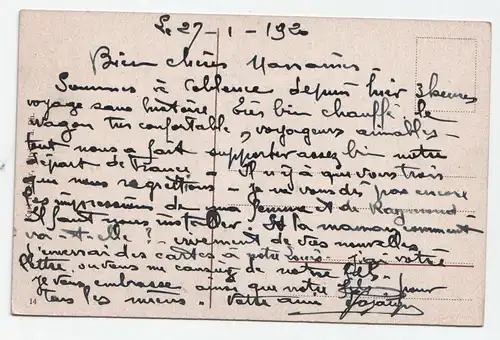 Le 27 - 1 - 192
Bien chères
Sommes à Coblence depuis hier 3 heures
voyage sans histoire très bien chauffé, le
wagon très confortable, voyageurs aimables -
tout nous a fait supporter assez bien notre
départ de France - Il n'y a que vous trois
que nous regrettions - Je ne vous dis pas encore
les impressions de ma femme et de Raymond
Il faut nous installer - Et la maman comment
va-t-elle ? - vivement de vos nouvelles
J'enverrai des cartes à votre - J'ai votre
lettre, où vous me causez de notre
Je vous embrasse ainsi que notre pour
tous les miens. Votre ami
14